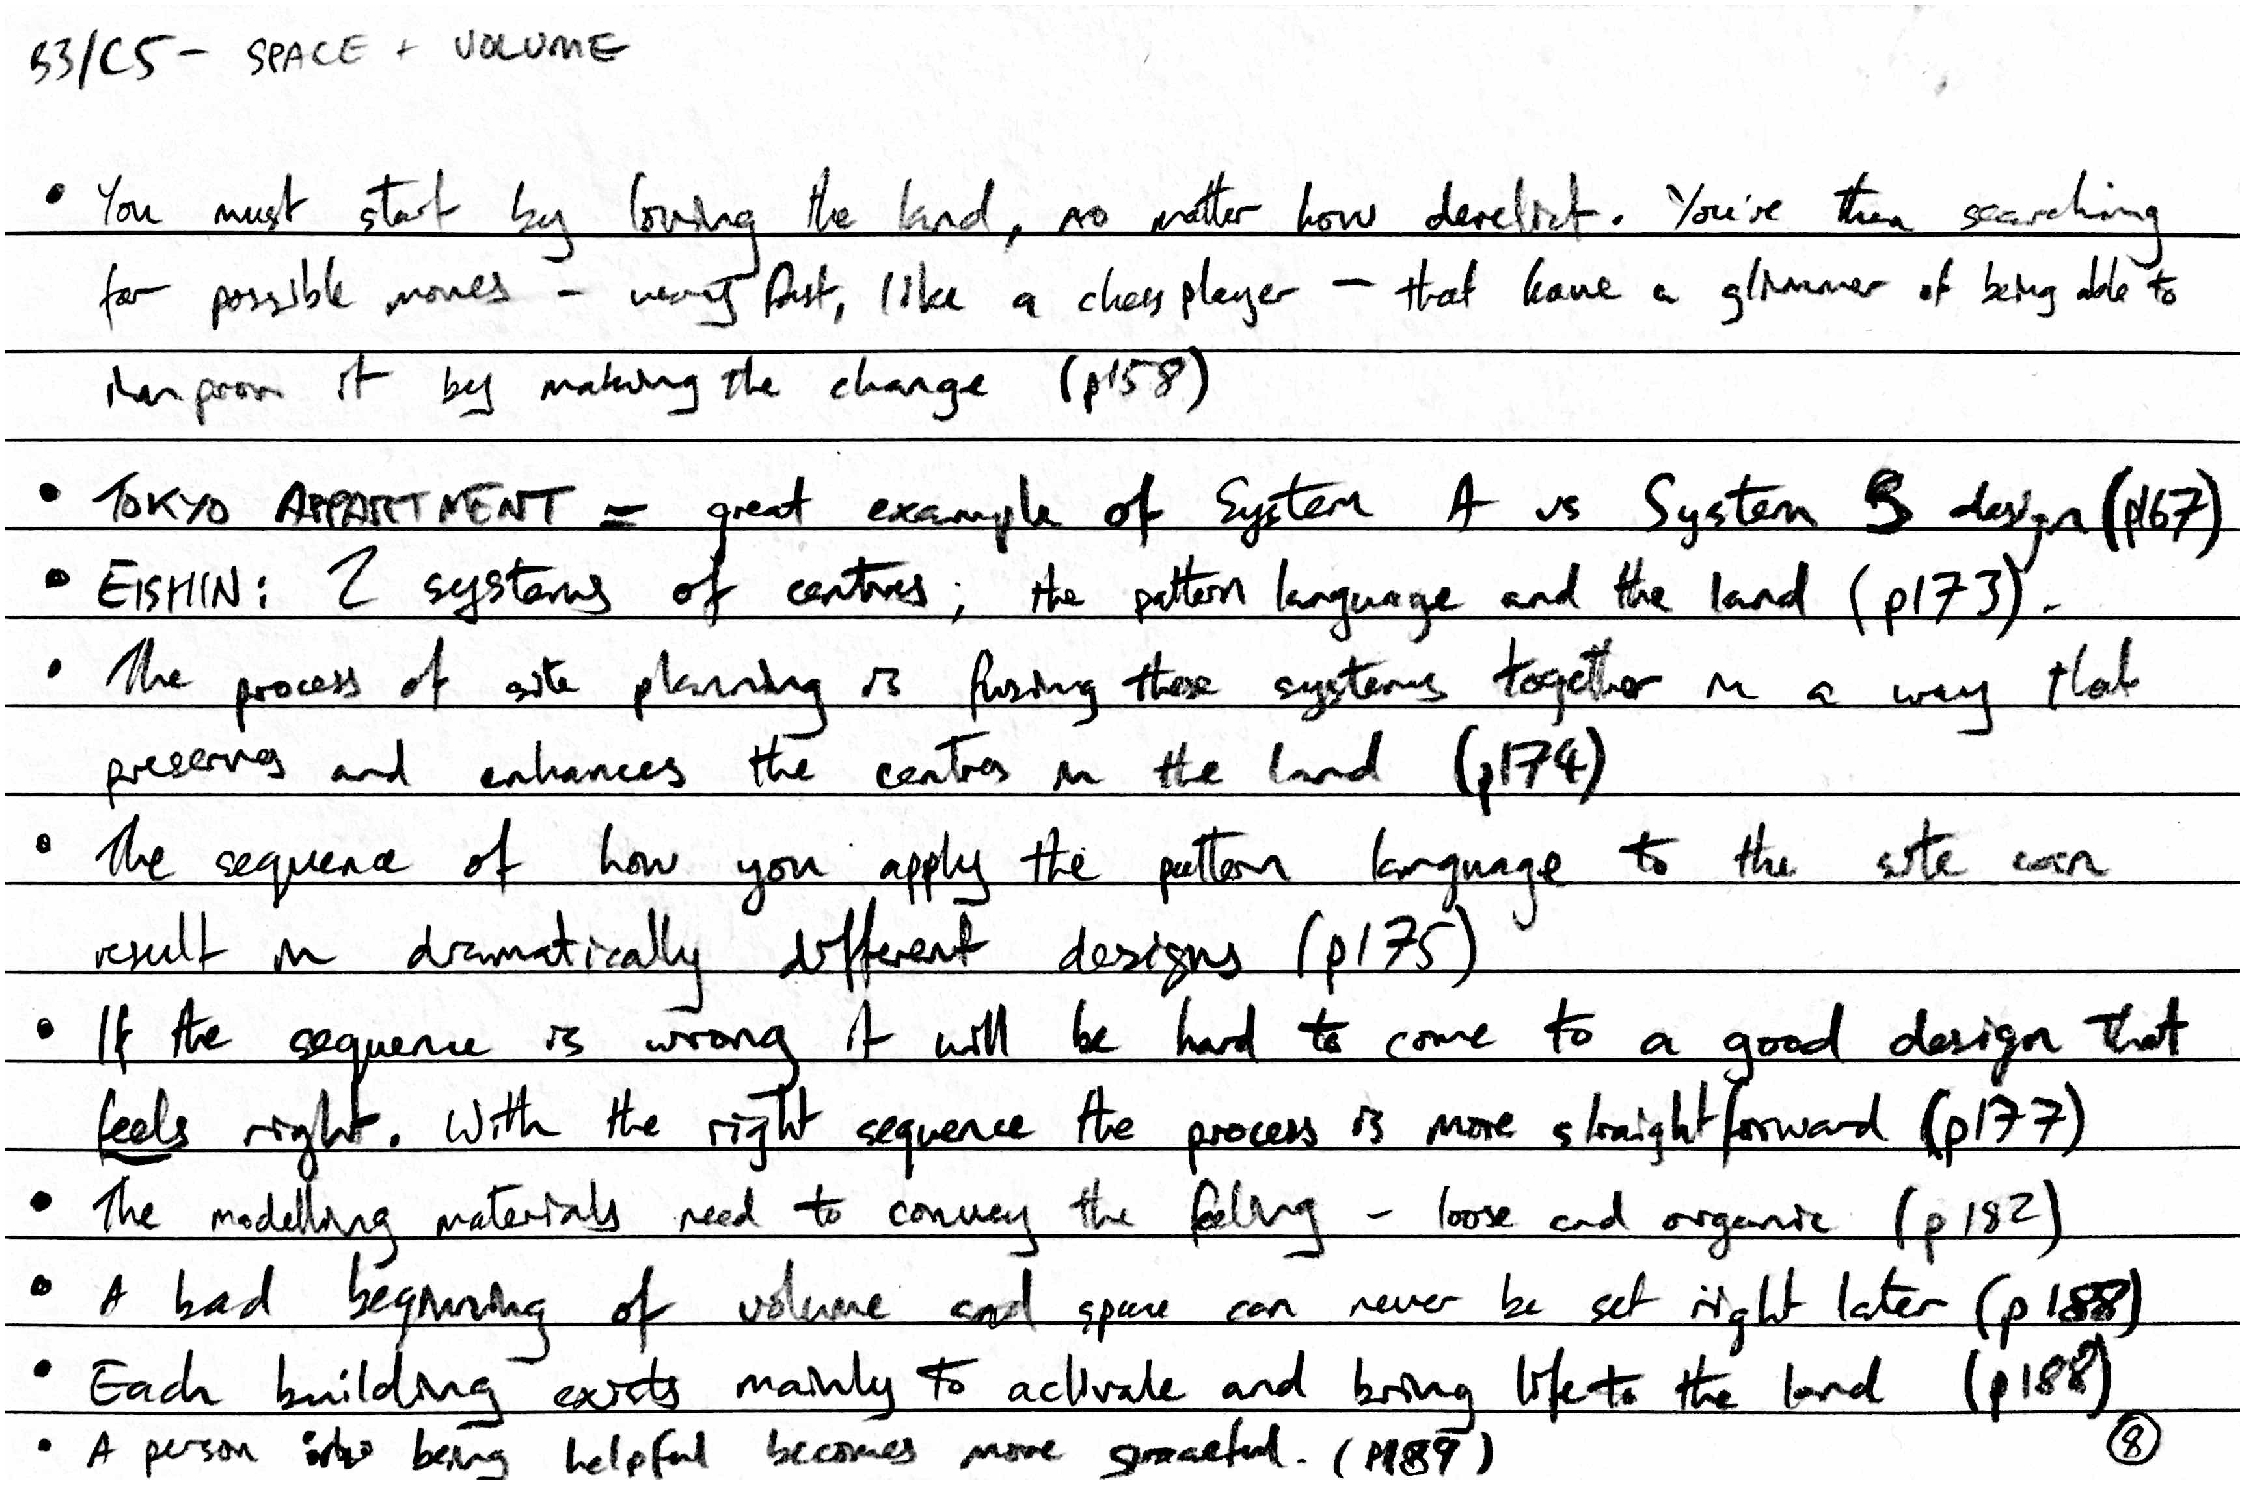 B3/C5 - SPACE + VOLUME
• You must start by loving the land, no matter how derelict. You're then searching
for possible moves - very fast, like a chess player - that have a glimmer of being able to
improve it by making the change (p158)
• TOKYO APPARTMENT = great example of System A vs System B design (p167)
• EISHIN: 2 systems of centres; the pattern language and the land (p173).
• The process of site planning is fusing these systems together in a way that
preserves and enhances the centres in the land (p174)
• The sequence of how you apply the pattern language to the site can
result in dramatically different designs (p175)
• If the sequence is wrong it will be hard to come to a good design that
feels right. With the right sequence the process is more straightforward (p177)
• The modelling materials need to convey the feeling - loose and organic (p182)
• A bad beginning of volume and space can never be set right later (p188)
• Each building exists mainly to activate and bring life to the land (p188)
• A person being helpful becomes more graceful. (p189)
8